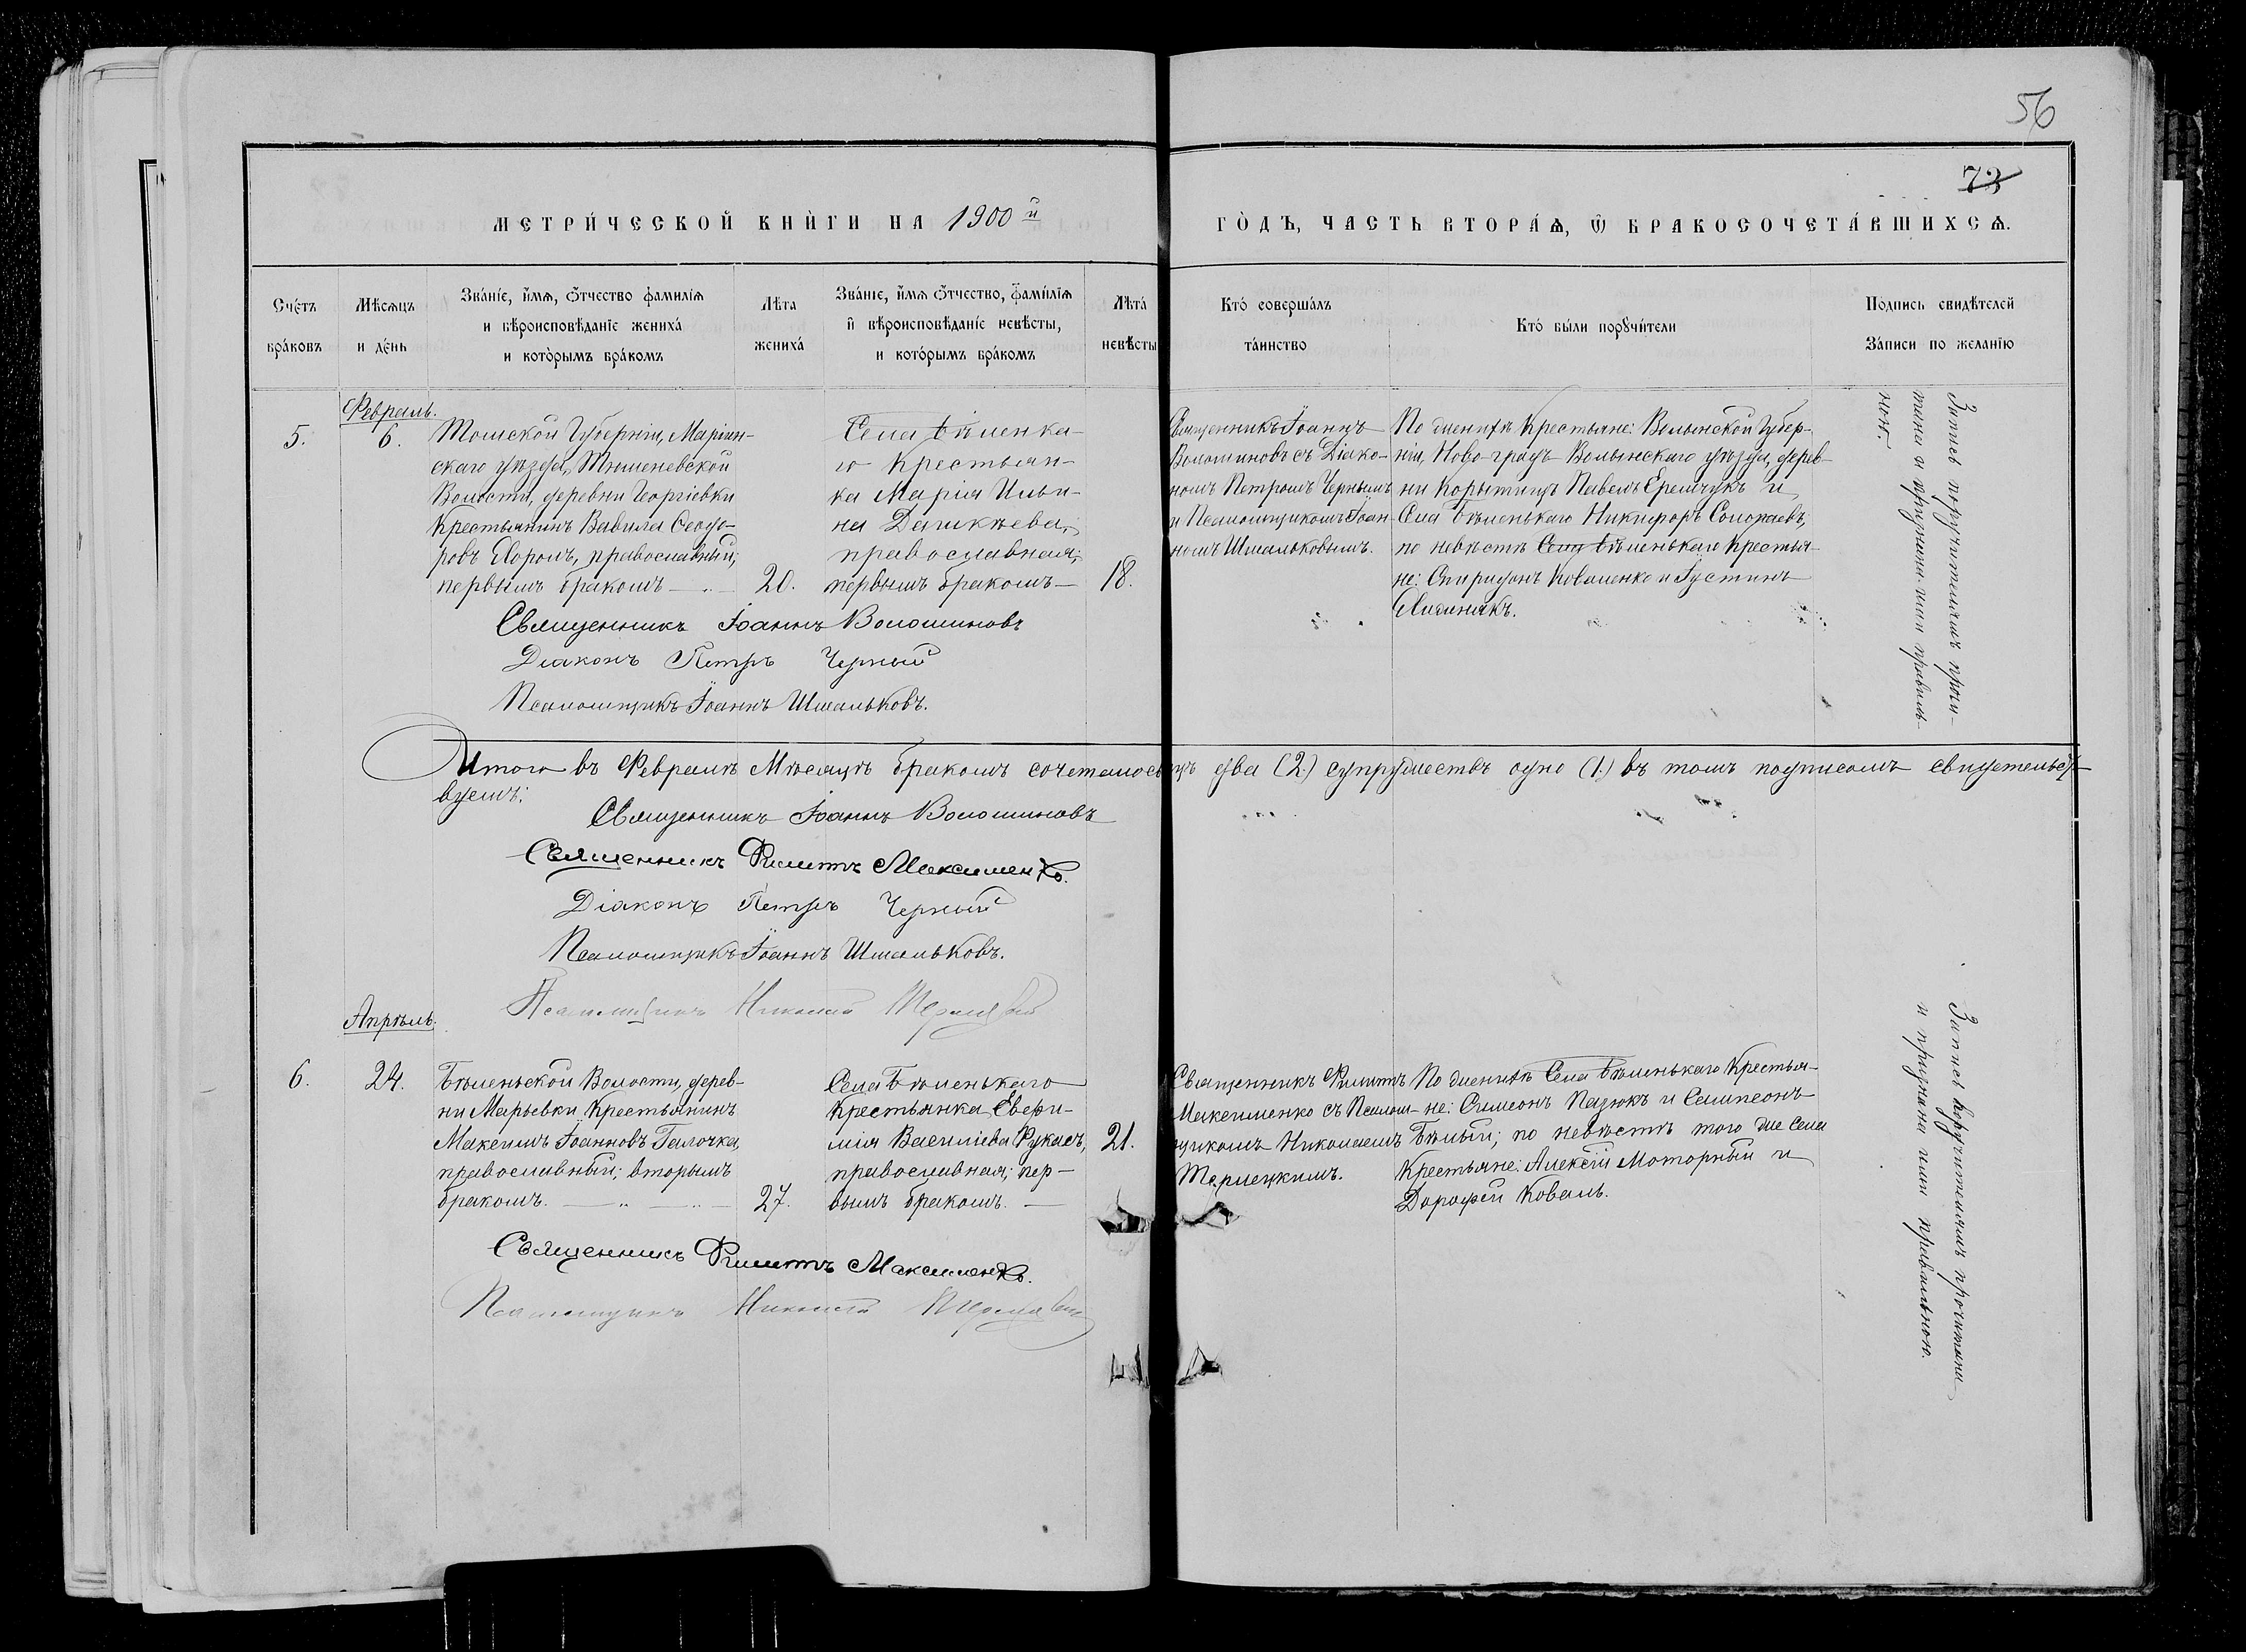 56
73
МЕТРИ́ЧЕСКОЙ КНИ́ГИ НА 1900й
ГО́ДЪ, ЧАСТЬ ВТОРА́Ѧ, Ѿ БРАКОСОЧЕТА́ВШИХСѦ.
Сче́тъ
бра́ковъ
Мѣсяцъ
и де́нь
Зва́ніе, и́мѧ, ѿтчество фамилія
и вѣроисповѣданіе жениха́
и кото́рымъ бра́комъ
Лѣта
жениха́
Зва́ніе, и́мѧ ѿтчество, фами́лія
и вѣроисповѣданіе невѣсты,
и кото́рымъ бра́комъ
Лѣта́
невѣсты
Кто́ соверша́лъ
та́инство
Кто́ бы́ли порꙋчи́тели
По́дпись свидѣтелей
За́писи по жела́нію
Февраль.
5.
6.
Томской Губерніи, Маріин-
скаго уѣзда, Тюменевской
Волости, деревни Георгіевки
Крестьянинъ Вавила Ѳеодо-
ровъ Хоромъ, православный;
первымъ бракомъ — „ —
20.
Села Бѣленька-
го Крестьян-
ка Марія Ильи-
на Даликѣева,
православная;
первымъ бракомъ —
18.
Священникъ Іоаннъ
Волошиновъ съ Діако-
номъ Петромъ Чернымъ
и Псаломщикомъ Іоан-
номъ Шмальковымъ.
По женихѣ Крестьяне: Волынской Губер-
ніи, Ново-градъ Волынскаго уѣзда, дерев-
ни Корытищъ Павелъ Еремчукъ и
Села Бѣленькаго Никифоръ Солопаевъ;
по невѣстѣ Села Бѣленькаго Крестья-
не: Спиридонъ Коваленко и Іустинъ
Запись поручителямъ прочи-
тана и признана ими правиль-
ною.
Священникъ Іоаннъ Волошиновъ
Діаконъ Петръ Черный
Псаломщикъ Іоаннъ Шмальковъ.
Итого въ Февралѣ Мѣсяцѣ бракомъ сочеталось лицъ два (2.) супружествъ одно (1.) въ томъ подписомъ свидетельст-
вуемъ:
Священникъ Іоаннъ Волошиновъ
Священникъ Филиппъ Максименко.
Діаконъ Петръ Черный
Псаломщикъ Іоаннъ Шмальковъ.
Псаломщикъ Николай Терлецкій
Апрѣль.
6.
24.
Бѣленьской Волости, дерев-
ни Марьевки Крестьянинъ
Максимъ Іоанновъ Галочка,
православный; вторымъ
бракомъ. — „ — „ —
27.
Села Бѣленькаго
Крестьянка Евфи-
мія Васильева Рукасъ,
православная; пер-
вымъ бракомъ. —
21.
Священникъ Филиппъ
Максименко съ Псалом-
щикомъ Николаемъ
Терлецкимъ.
По женихѣ Села Бѣленькаго Крестья-
не: Симеонъ Пазюкъ и Сампсонъ
Бѣлый; по невѣстѣ того же села
Крестьяне: Алексѣй Моторный и
Дорофей Коваль.
Запись поручителямъ прочитана
и признана ими правильною.
Священникъ Филиппъ Максименко.
Псаломщикъ Николай Терлецкій